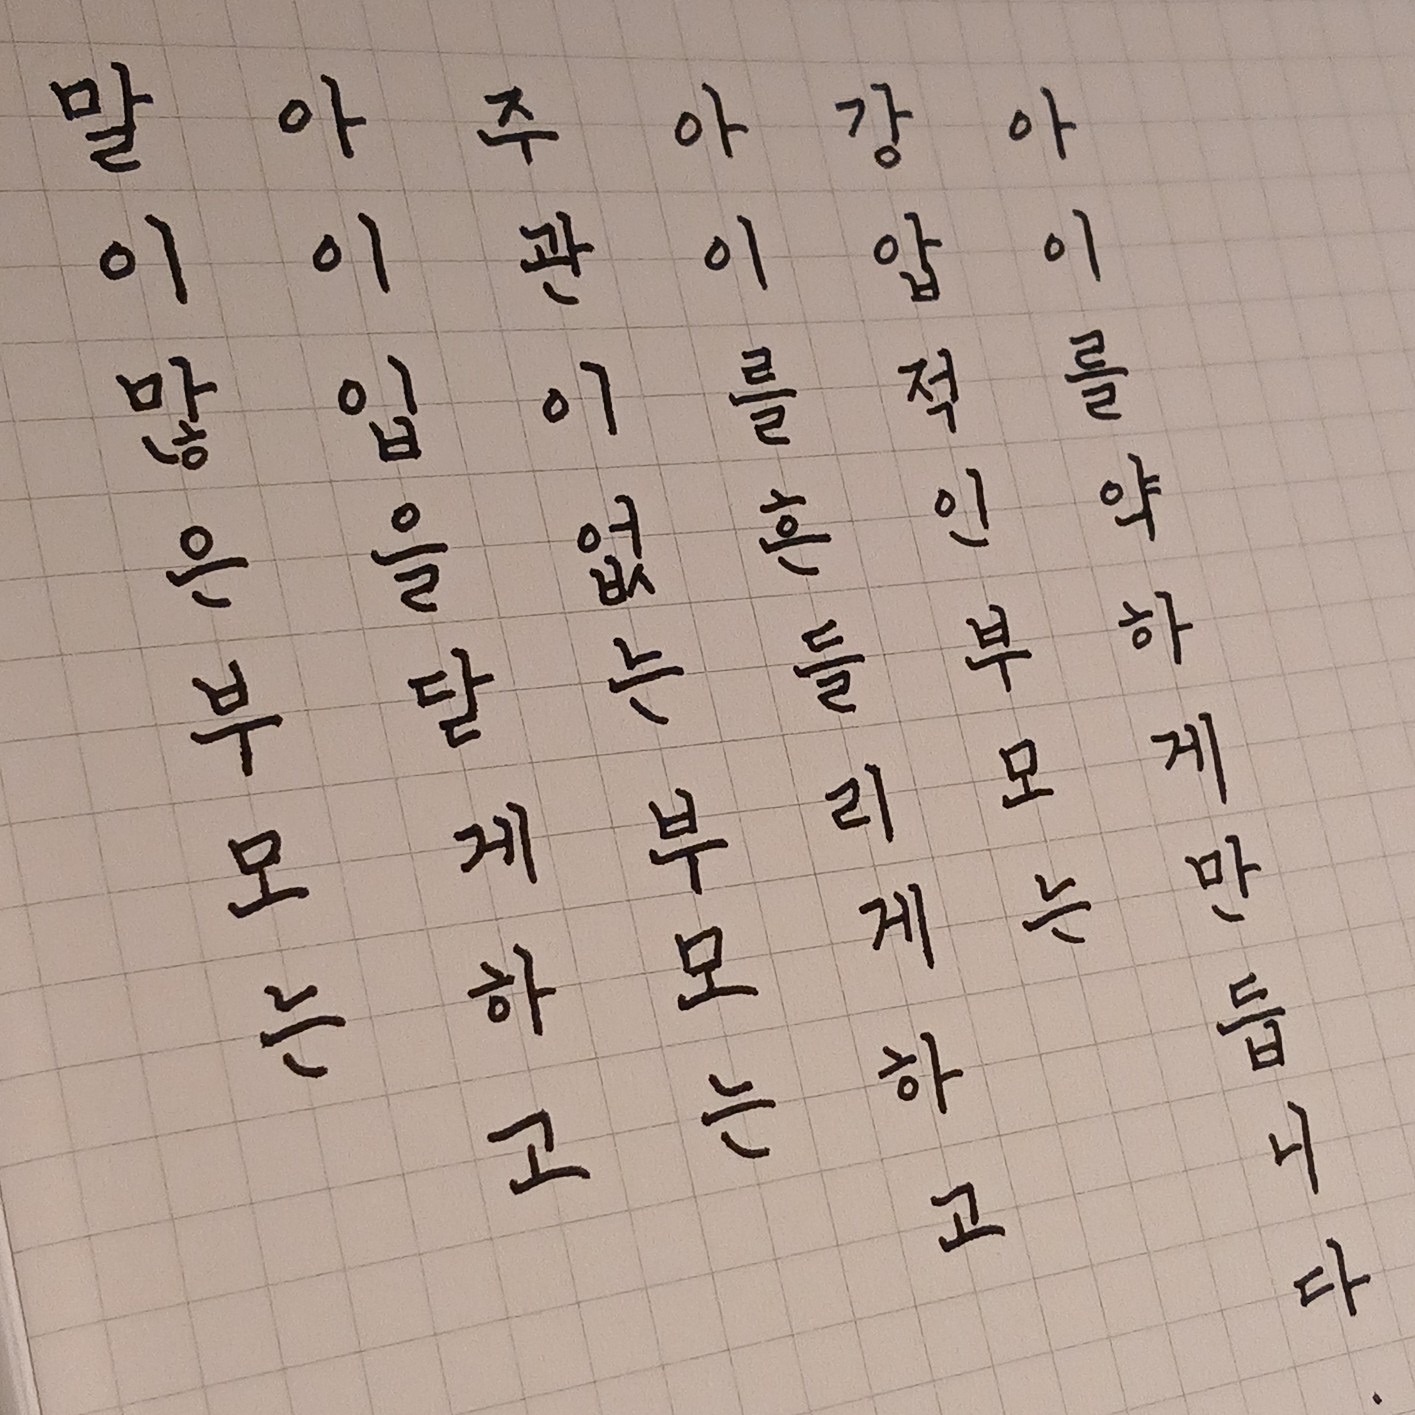 말이 많은 부모는
아이 입을 닫게 하고
주관이 없는 부모는
아이를 흔들리게 하고
강압적인 부모는
아이를 약하게 만듭니다.